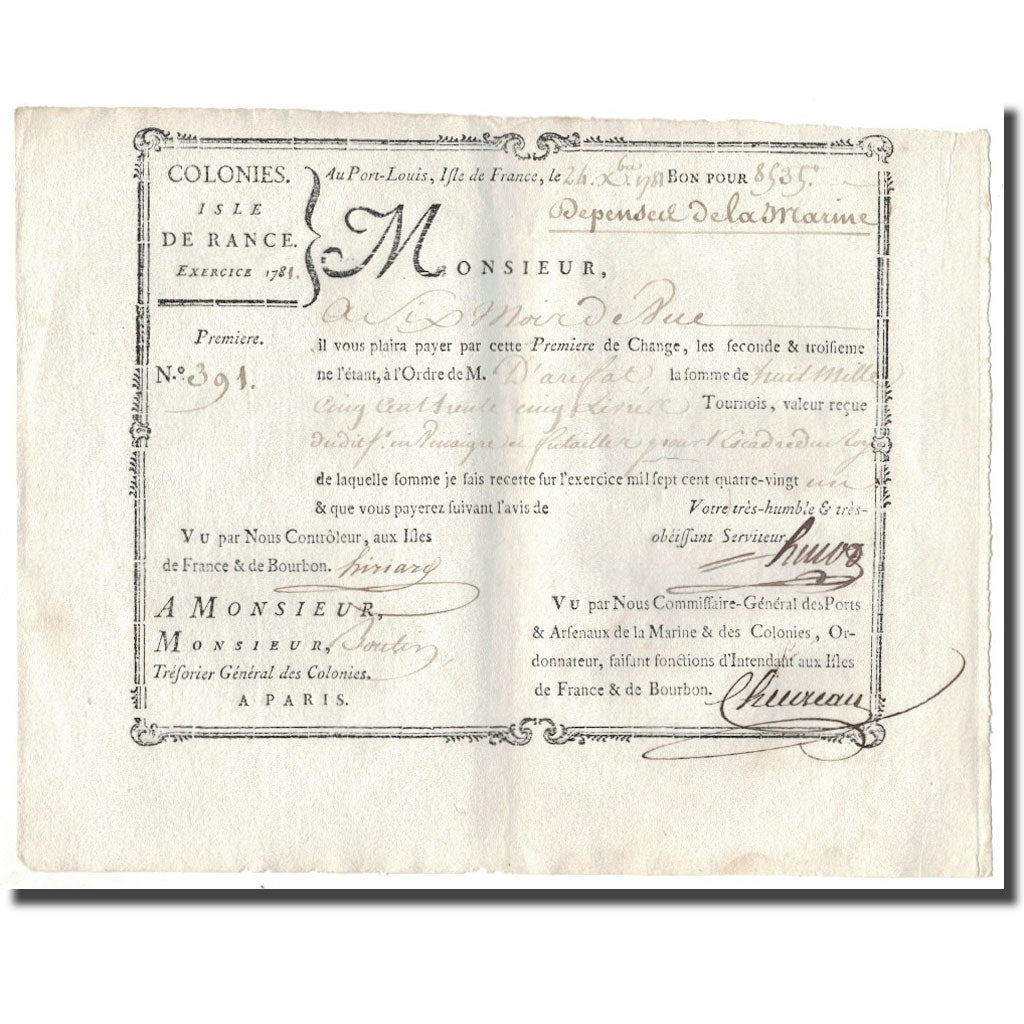 COLONIES.
ISLE
DE RANCE.
EXERCICE 1781.
Au Port-Louis, Isle de France, le 24. Xbre 1781 BON POUR 8535.
Depenses de la Marine
MONSIEUR,
A Six Mois de Vue
Premiere.
N.º 391.
il vous plaira payer par cette Premiere de Change, les seconde & troisieme
ne l'étant, à l'Ordre de M. D'arifat la somme de huit Mille
Cinq Cent trente cinq Livres Tournois, valeur reçue
dudit Sr. en Vinaigre en futailles pour l'Escadre du Roy
de laquelle somme je fais recette sur l'exercice mil sept cent quatre-vingt un
& que vous payerez suivant l'avis de
Votre très-humble & très-
obéissant Serviteur
VU par Nous Contrôleur, aux Isles
de France & de Bourbon.
A MONSIEUR,
MONSIEUR, Boutin,
Trésorier Général des Colonies.
A PARIS.
VU par Nous Commissaire-Général des Ports
& Arsenaux de la Marine & des Colonies, Or-
donnateur, faisant fonctions d'Intendant aux Isles
de France & de Bourbon. Chevreau